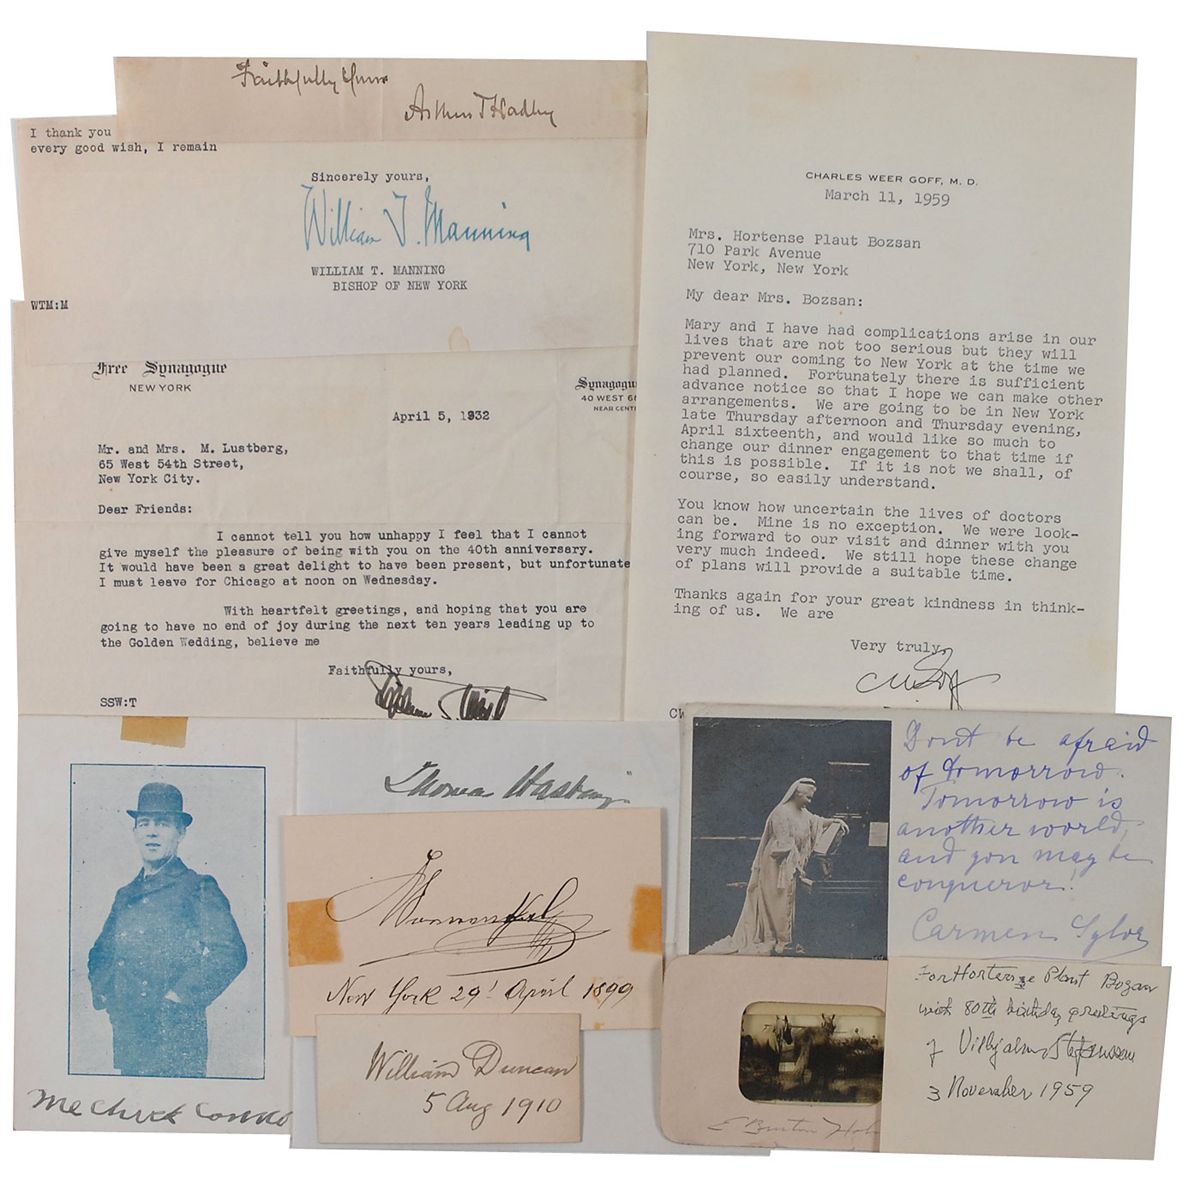 Faithfully Yours
Arthur T Hadley
I thank you
every good wish, I remain
Sincerely yours,
William T. Manning
WILLIAM T. MANNING
BISHOP OF NEW YORK
WTM:M
Free Synagogue
NEW YORK
Synagogue
40 WEST 6
NEAR CENT
April 5, 1932
Mr. and Mrs. M. Lustberg,
65 West 54th Street,
New York City.
Dear Friends:
I cannot tell you how unhappy I feel that I cannot
give myself the pleasure of being with you on the 40th anniversary.
It would have been a great delight to have been present, but unfortunate
I must leave for Chicago at noon on Wednesday.
With heartfelt greetings, and hoping that you are
going to have no end of joy during the next ten years leading up to
the Golden Wedding, believe me
Faithfully yours,
SSW:T
CHARLES WEER GOFF, M. D.
March 11, 1959
Mrs. Hortense Plaut Bozsan
710 Park Avenue
New York, New York
My dear Mrs. Bozsan:
Mary and I have had complications arise in our
lives that are not too serious but they will
prevent our coming to New York at the time we
had planned. Fortunately there is sufficient
advance notice so that I hope we can make other
arrangements. We are going to be in New York
late Thursday afternoon and Thursday evening,
April sixteenth, and would like so much to
change our dinner engagement to that time if
this is possible. If it is not we shall, of
course, so easily understand.
You know how uncertain the lives of doctors
can be. Mine is no exception. We were look-
ing forward to our visit and dinner with you
very much indeed. We still hope these change
of plans will provide a suitable time.
Thanks again for your great kindness in think-
ing of us. We are
Very truly,
CW
Thomas Hastings
New York 29! April 1899
William Duncan
5 Aug 1910
Don't be afraid
of tomorrow.
Tomorrow is
another world,
and you may be
conqueror!
Carmen Sylva
For Hortense Plaut Bozan
with 80th birthday greetings
of Vilhjalmur Stefansson
3 November 1959
E Burton Hol